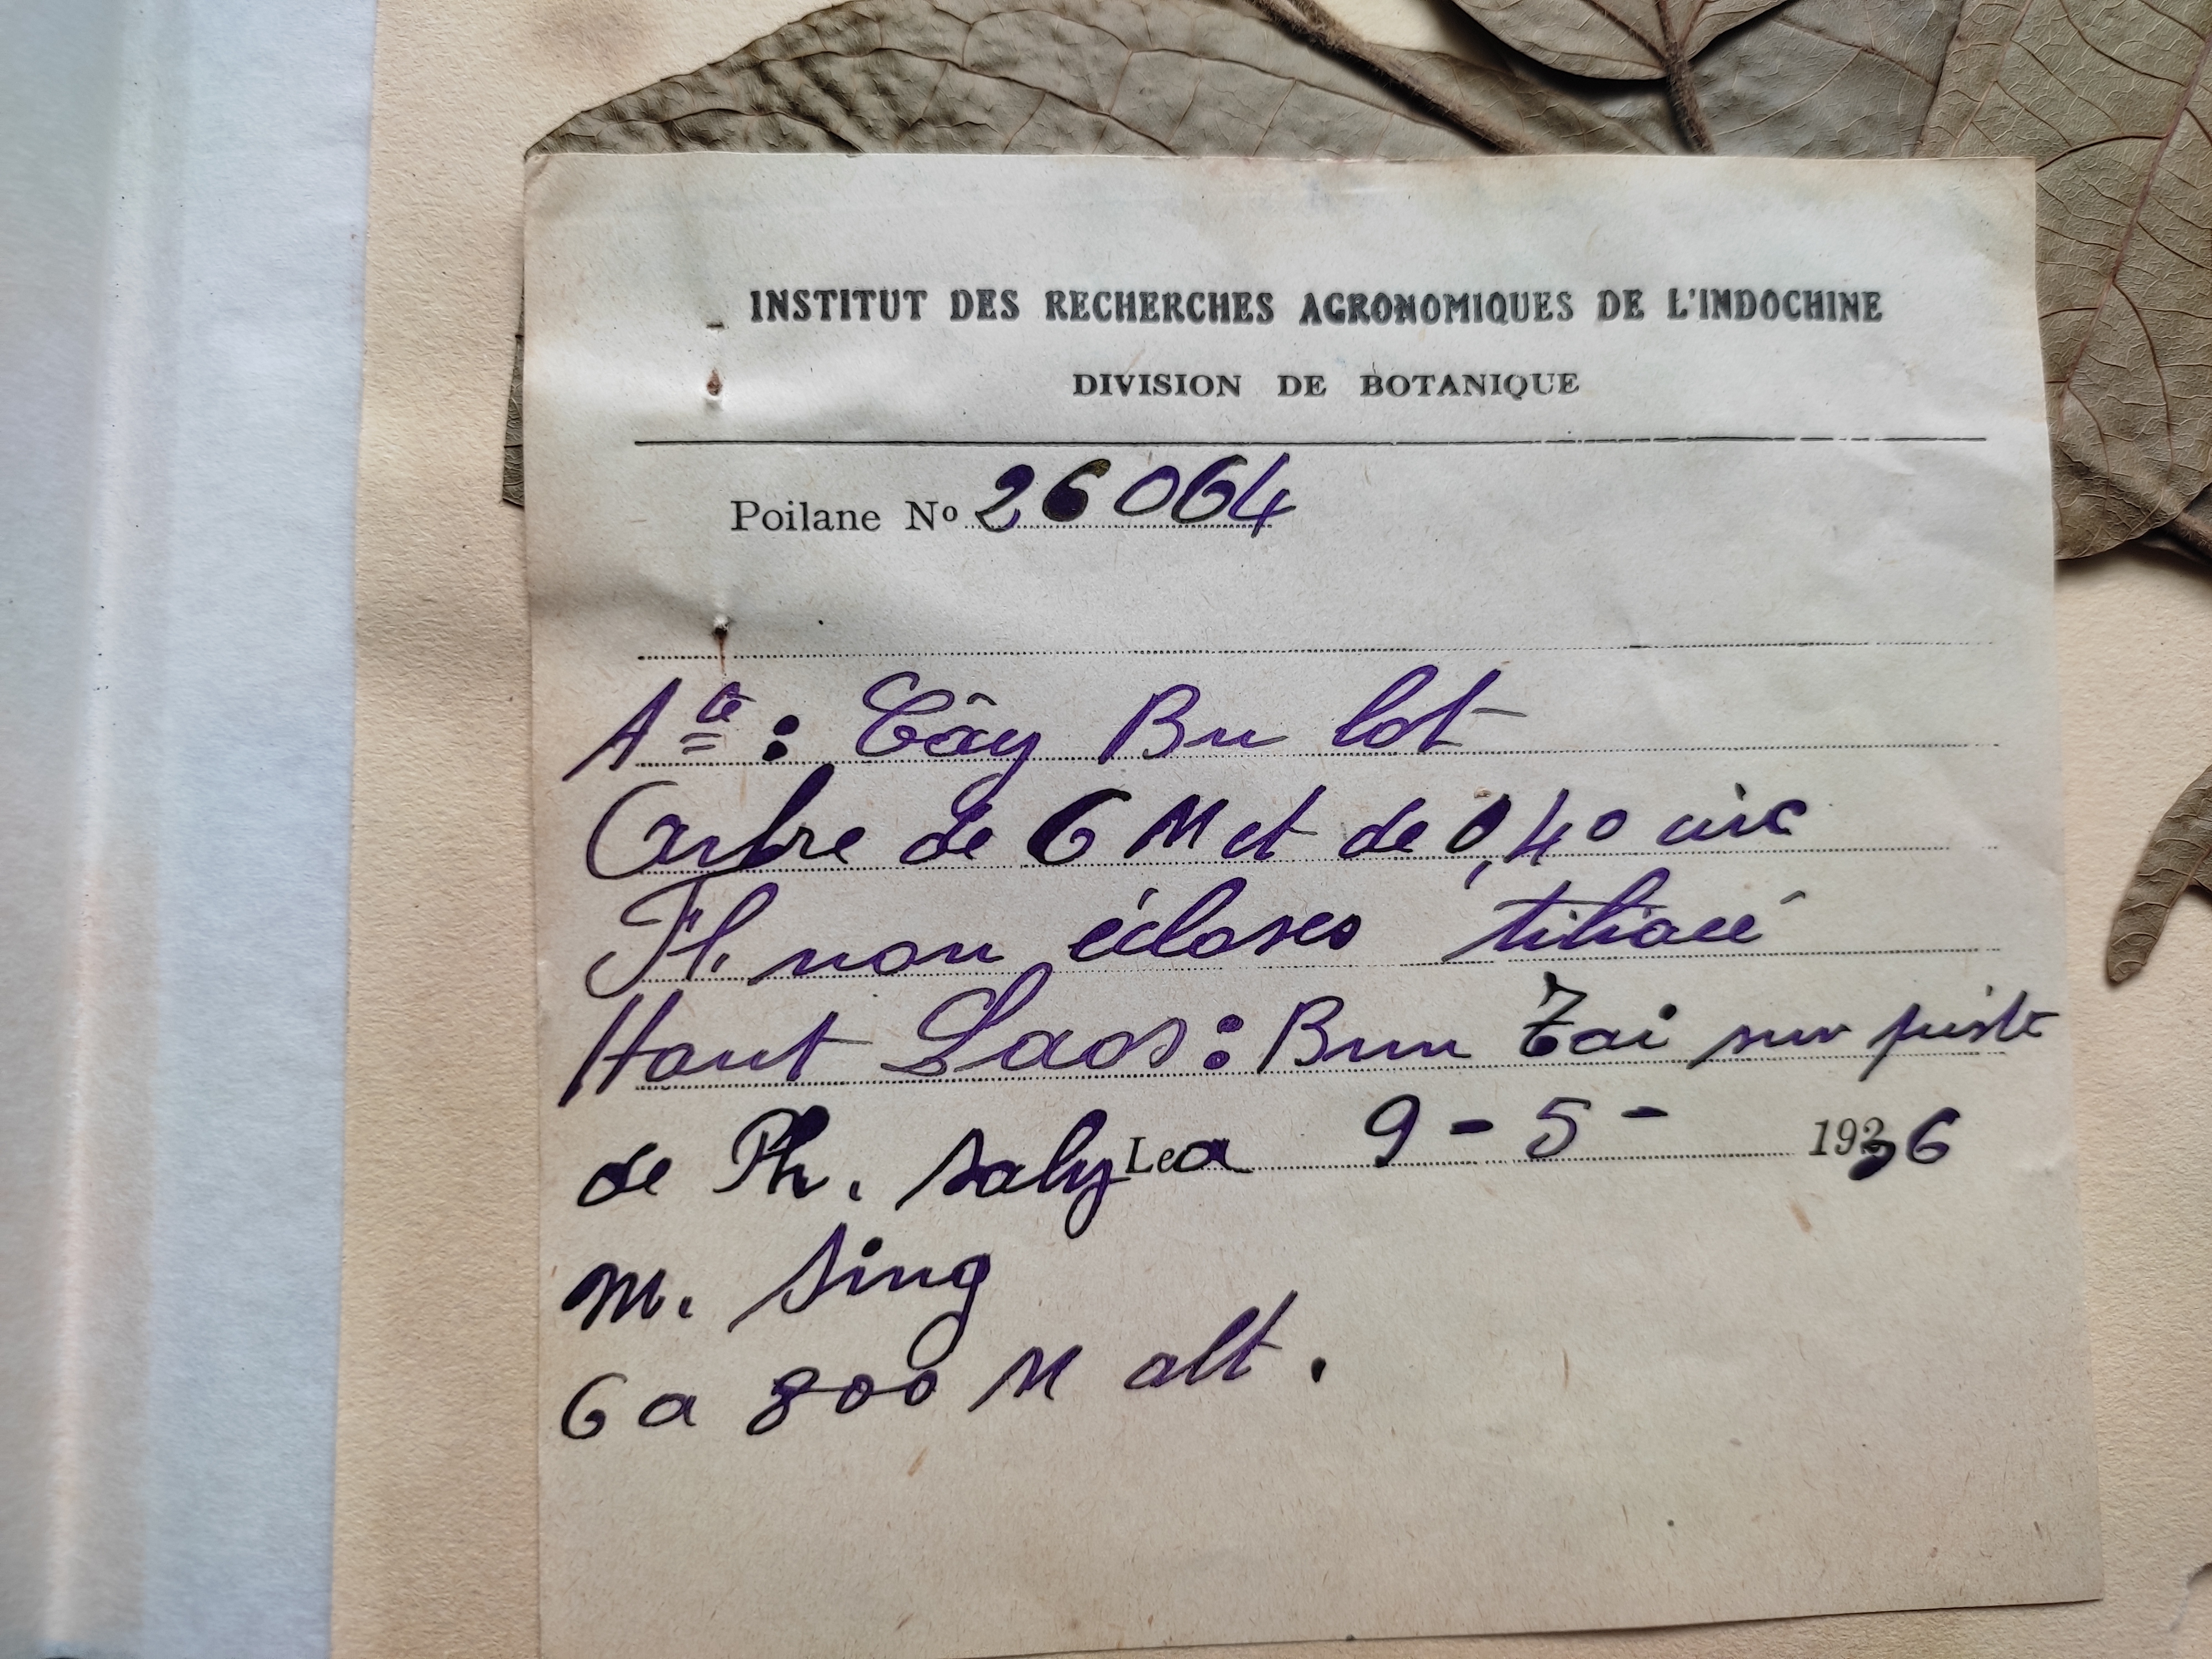 INSTITUT DES RECHERCHES AGRONOMIQUES DE L'INDOCHINE
DIVISION DE BOTANIQUE
Poilane Nº 26064
Ate : Cây Bu lot
Arbre de 6 M et de 0,40 circ
Fl. non écloses tiliacé
Haut Laos : Bun Tai sur piste
de Ph. Saly Le a 9 - 5 - 1936
M. Sing
6 a 800 M alt.